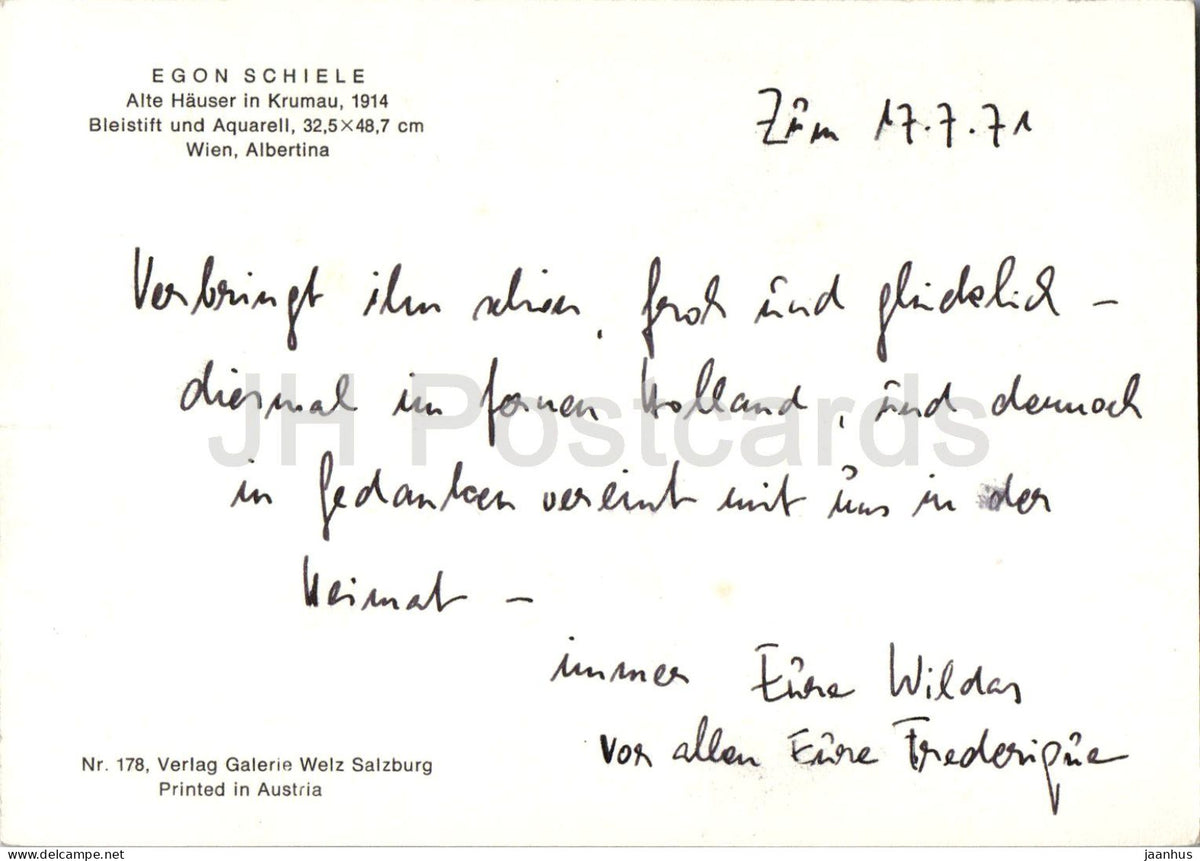 EGON SCHIELE
Alte Häuser in Krumau, 1914
Bleistift und Aquarell, 32,5×48,7 cm
Wien, Albertina
Zum 17.7.71
Verbringt ihn schön, froh und glücklich –
diesmal im fernen Holland, und dennoch
in Gedanken vereint mit uns in der
Heimat –
immer Eure Wildas
vor allen Eure Frederique
Nr. 178, Verlag Galerie Welz Salzburg
Printed in Austria
JH Postcards
https://www.delcampe.net
jaanhus